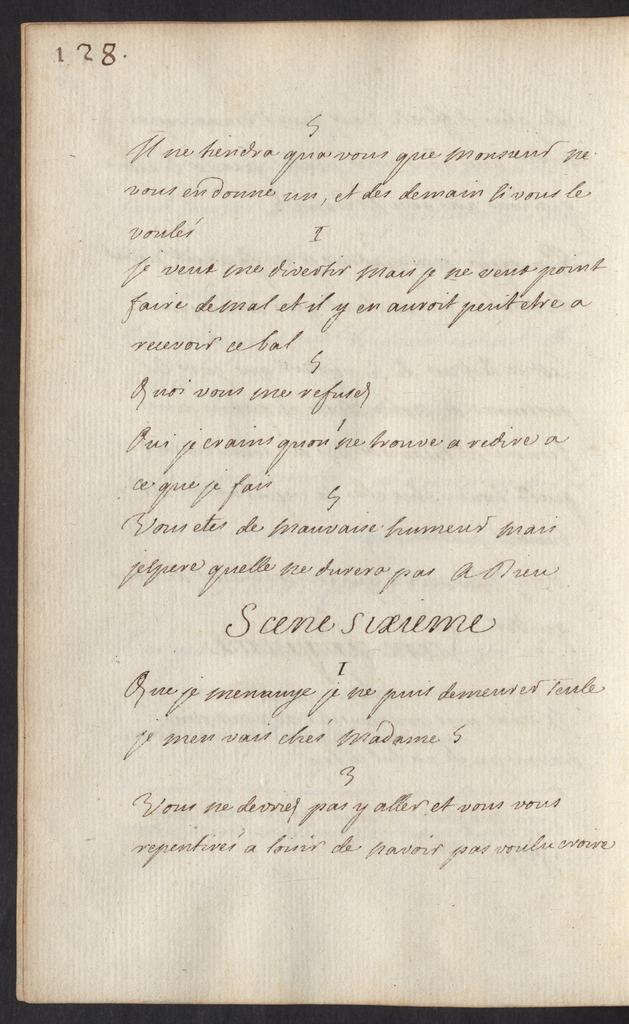 128.
5
Il ne tiendra qua vous que monsieur ne
vous en donne un, et des demain si vous le
voulés
I
je veux me divertir mais je ne veux point
faire de mal et il y en auroit peut etre a
recevoir ce bal
5
Quoi vous me refusez
I
Oui je crains quon ne trouve a redire a
ce que je fais
5
Vous etes de mauvaise humeur mais
jespere quelle ne durera pas a Dieu
Scene sixieme
I
Que je menuuye je ne puis demeurer seule
je men vais chés Madame 5
3
Vous ne devriez pas y aller et vous vous
repentirés a loisir de navoir pas voulu croire